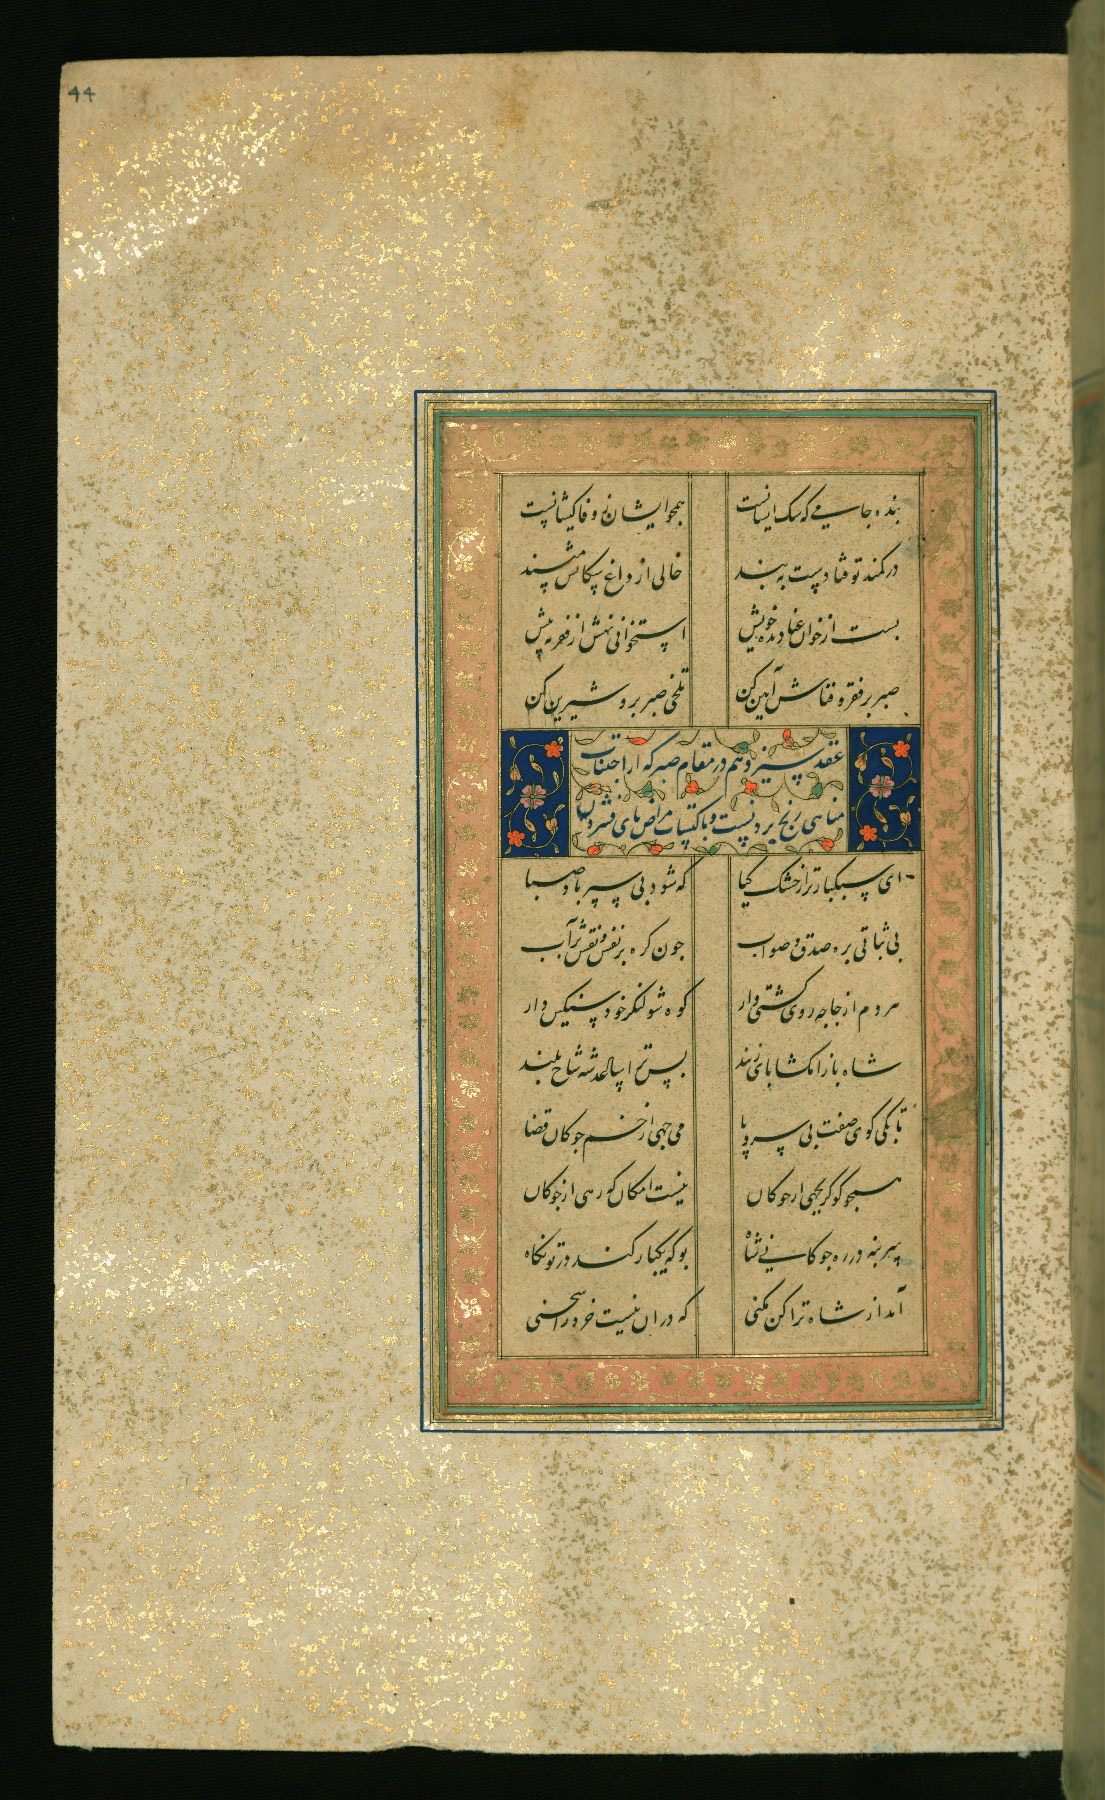 44
بنده جامی که سک ایشانست
همچو ایشان ز وفا کیشانست
در کمند تو فتادست به بند
خالی از داغ سکانش مپسند
بست از خوان غنا دیده خویش
استخوانی نهش از فقر به پیش
صبر بر فقر و فناش آیین کن
تلخی صبر برو شیرین کن
عقد سیزدهم در مقام صبر که از اجتناب
مناهی رنج بردنست و با کتساب مراض پای فشردن
ای سبکبارتر از خشک گیا
که شود بی سپر باد صبا
بی ثباتی بره صدق و صواب
چون کره بر نفس و نقش بر آب
هر دم از جا چه روی کشتی وار
کوه شو لنکر خود سنکین دار
شاه باز امکشا پای زبند
بس ترا پیالحدشه شاخ بلند
تا بکی کوی صفت بی سر و پا
می جهی از خم چوکان قضا
همچو کو کر بجهی از چوکان
نیست امکان که رهی از چوکان
سر بنه در ره چوکانی شاه
بو که یکبار کند در تو نکاه
آمد از شاه ترا کن مکنی
که در ان نیست خرد را سخنی